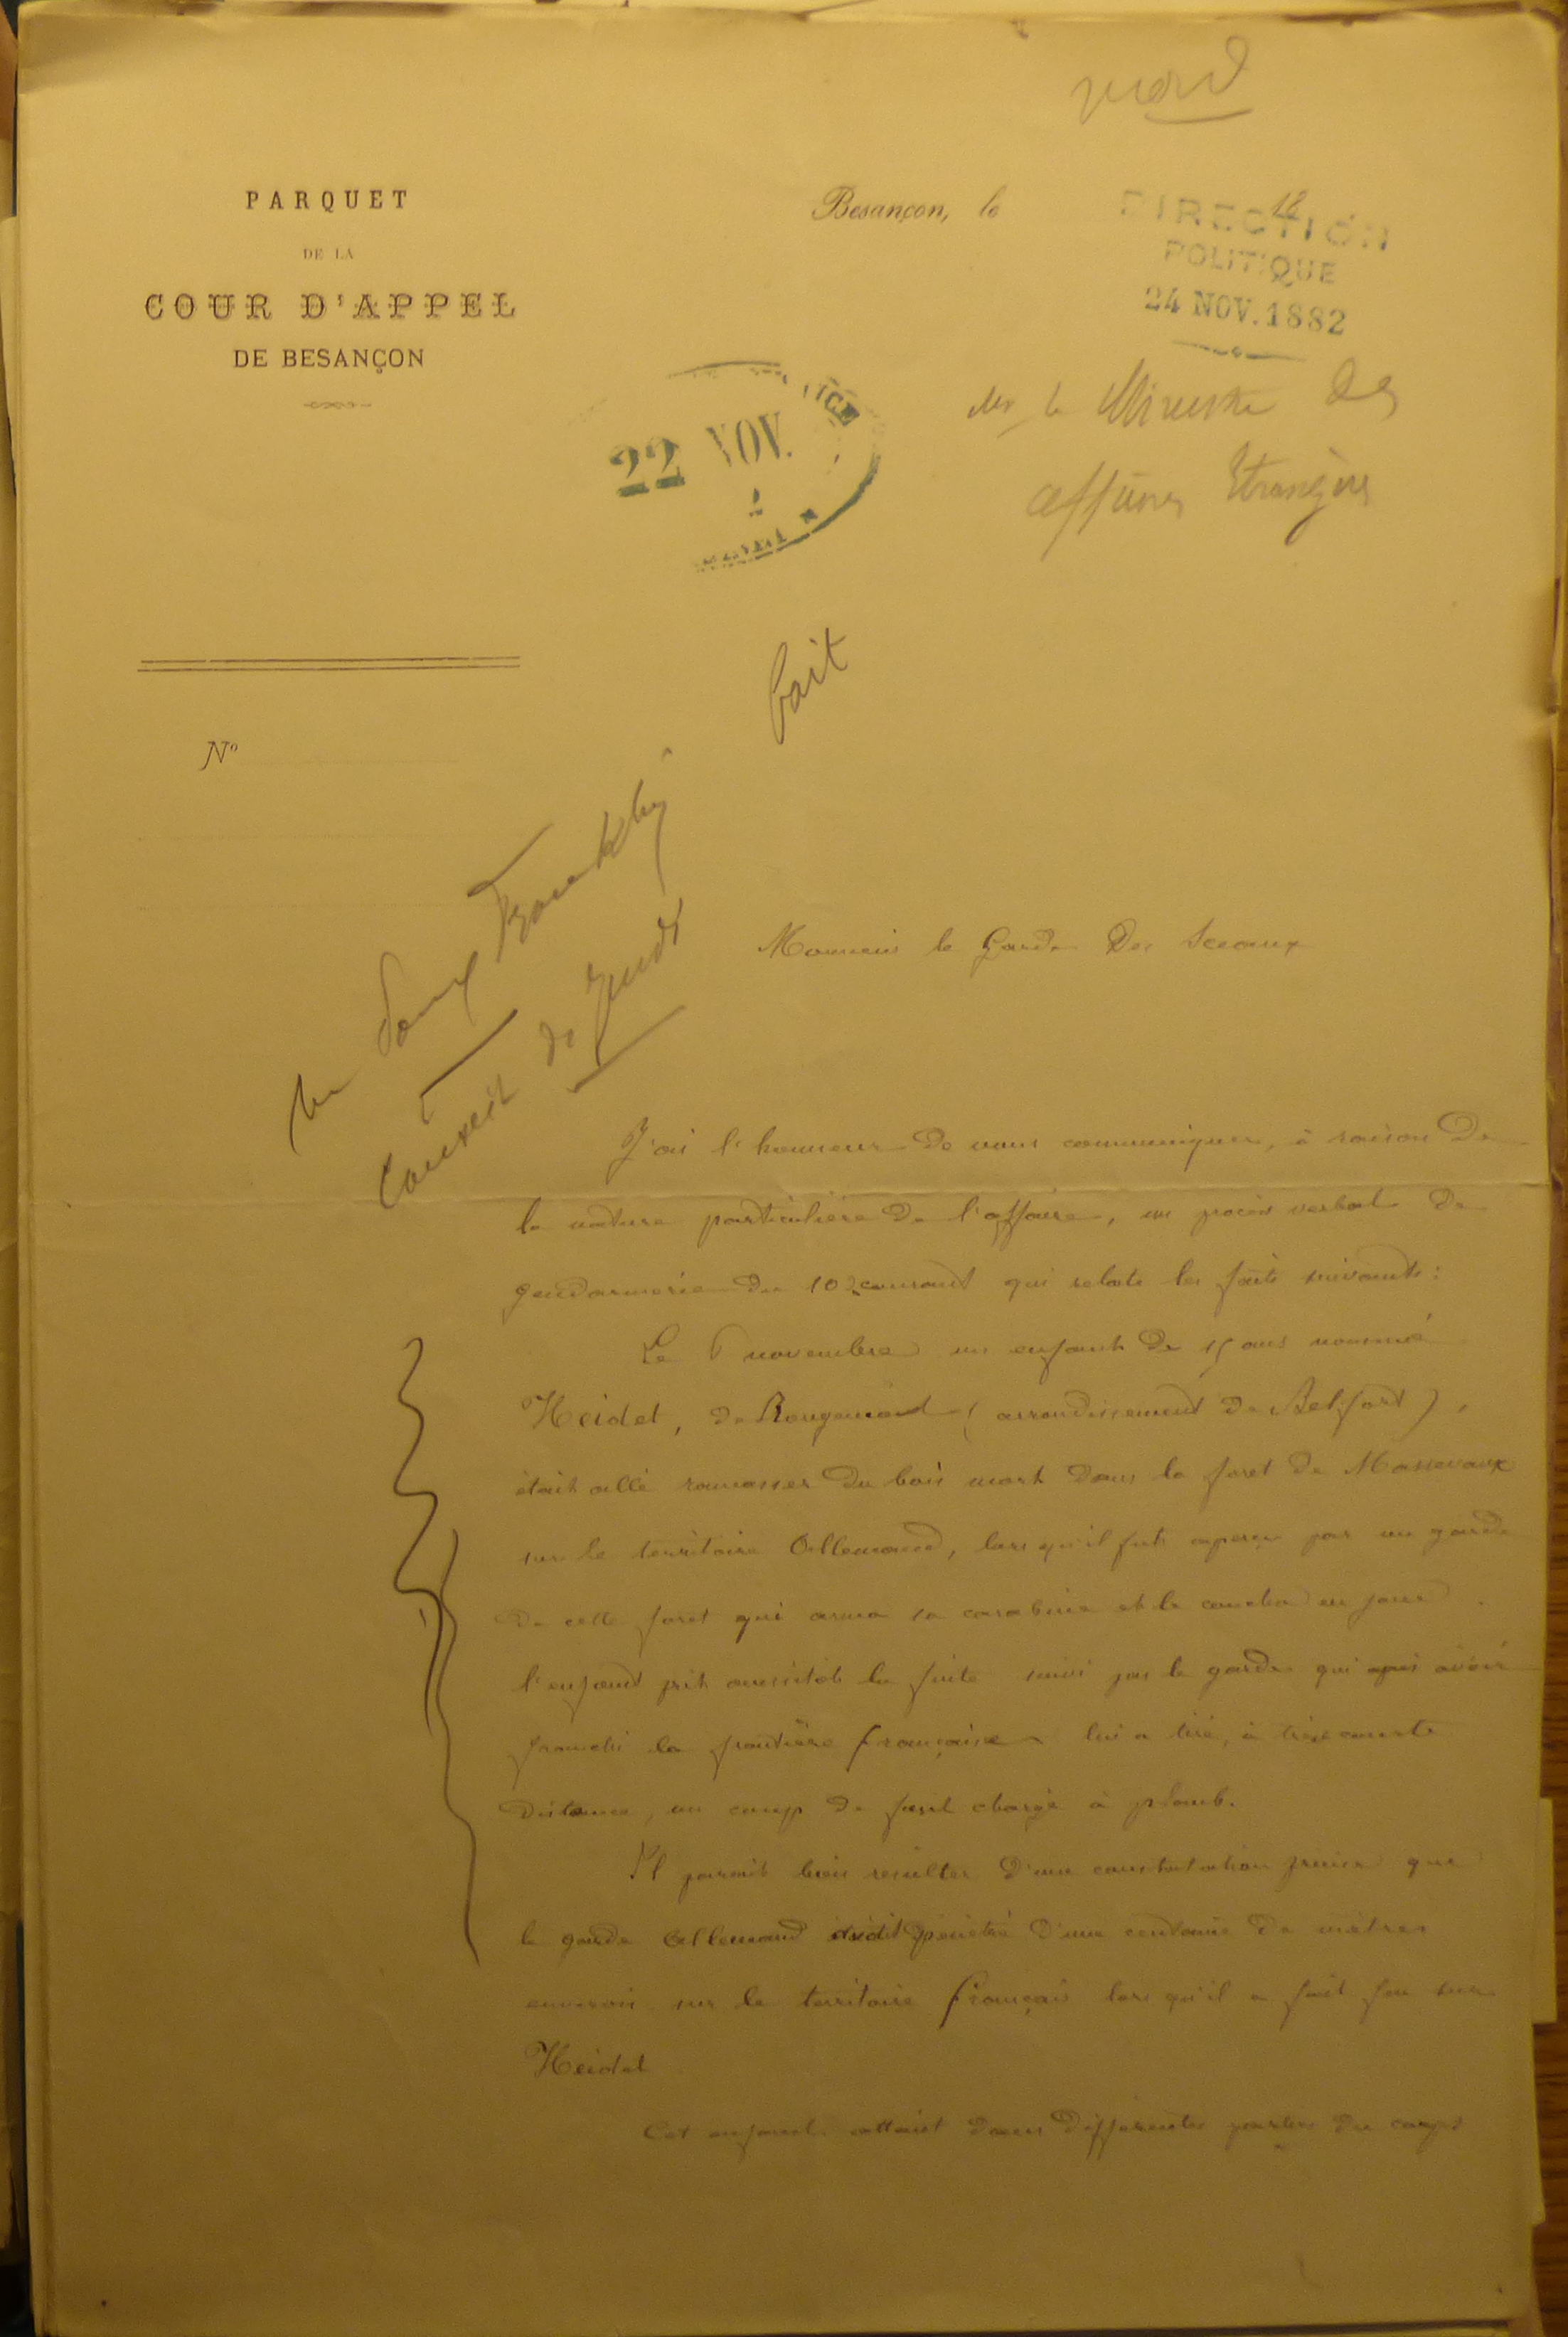 nord
PARQUET
DE LA
COUR D'APPEL
DE BESANÇON
Besançon, le
18
DIRECTION
POLITIQUE
24 NOV. 1882
22 NOV.
le Ministre des
affaires Etrangères
fait
N°
Conseil de Jeudi
Monsieur le Garde des Sceaux
J'ai l'honneur de vous communiquer, à raison de
la nature particulière de l'affaire, un procès verbal de
gendarmerie du 10 courant qui relate les faits suivants :
Le 6 novembre un enfant de 15 ans nommé
Heidet, de Rougemont (arrondissement de Belfort),
était allé ramasser du bois mort dans la foret de Massevaux
sur le territoire Allemand, lors qu'il fut aperçu par un garde
de cette foret qui arma sa carabine et le coucha en joue.
l'enfant prit aussitôt la fuite suivi par le garde qui après avoir
franchi la frontière française lui a tiré, à très courte
distance, un coup de fusil chargé à plomb.
Il parait bien resulter d'une constatation precise que
le garde Allemand avait pénétré d'une centaine de mètres
environ sur le territoire français lors qu'il a fait feu sur
Heidet
Cet enfant atteint dans différentes parties du corps